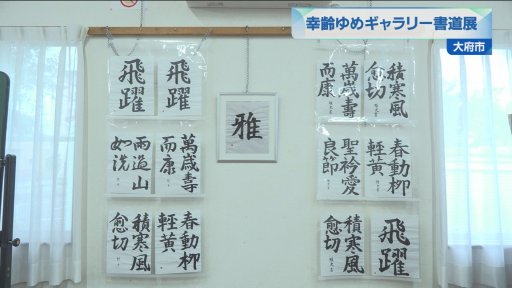 幸齢ゆめギャラリー書道展
大府市
飛躍
飛躍
雅
積寒風
愈切
萬歳壽
而康
萬歳壽
而康
雨過山
如洗
春動柳
軽黄
聖衿愛
良節
積寒風
愈切
春動柳
軽黄
飛躍
積寒風
愈切